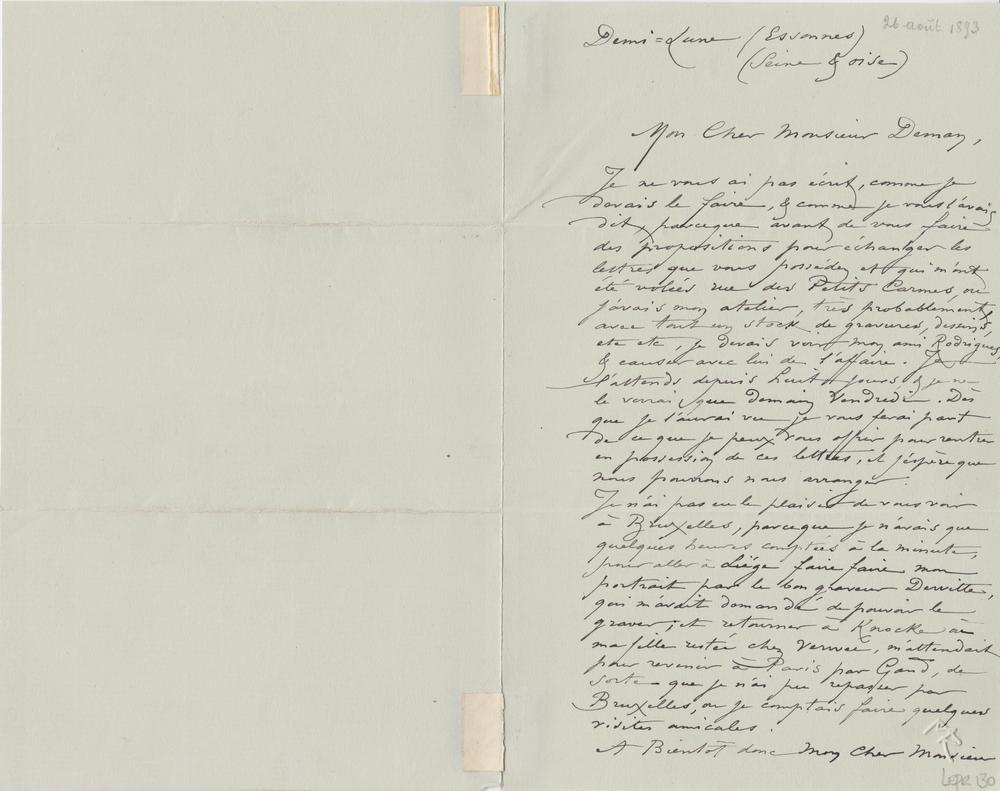 26 août 1893
Demi=Lune (Essonnes)
(Seine & oise)
Mon Cher Monsieur Deman,
Je ne vous ai pas écrit, comme je
devais le faire, & comme je vous l'avais
dit, parceque avant de vous faire
des propositions pour échanger les
lettres que vous possédez et qui m'ont
été volées rue des Petits Carmes, ou
j'avais mon atelier, très probablement,
avec tout un stock de gravures, dessins,
etc etc, je devais voir mon ami Rodrigues,
& causer avec lui de l'affaire. Je
l'attends depuis huit jours, & je ne
le verrai que demain Vendredi. Dès
que je l'aurai vu je vous ferai part
de ce que je peux vous offrir pour rentrer
en possession de ces lettres, et j'espère que
nous pourrons nous arranger.
Je n'ai pas eu le plaisir de vous voir
à Bruxelles, parceque je n'avais que
quelques heures comptées à la minute,
pour aller à Liége faire faire mon
portrait par le bon graveur
qui m'avait demandé de pouvoir le
graver, et retourner à Knocke où
ma fille restée chez Verwée, m'attendait
pour revenir à Paris par Gand, de
sorte que je n'ai pu repasser par
Bruxelles, ou je comptais faire quelques
visites amicales.
A Bientôt donc Mon Cher Monsieur
LEpr 130